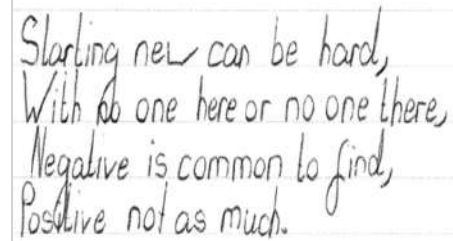 Starting new can be hard,
With no one here or no one there,
Negative is common to find,
Positive not as much.